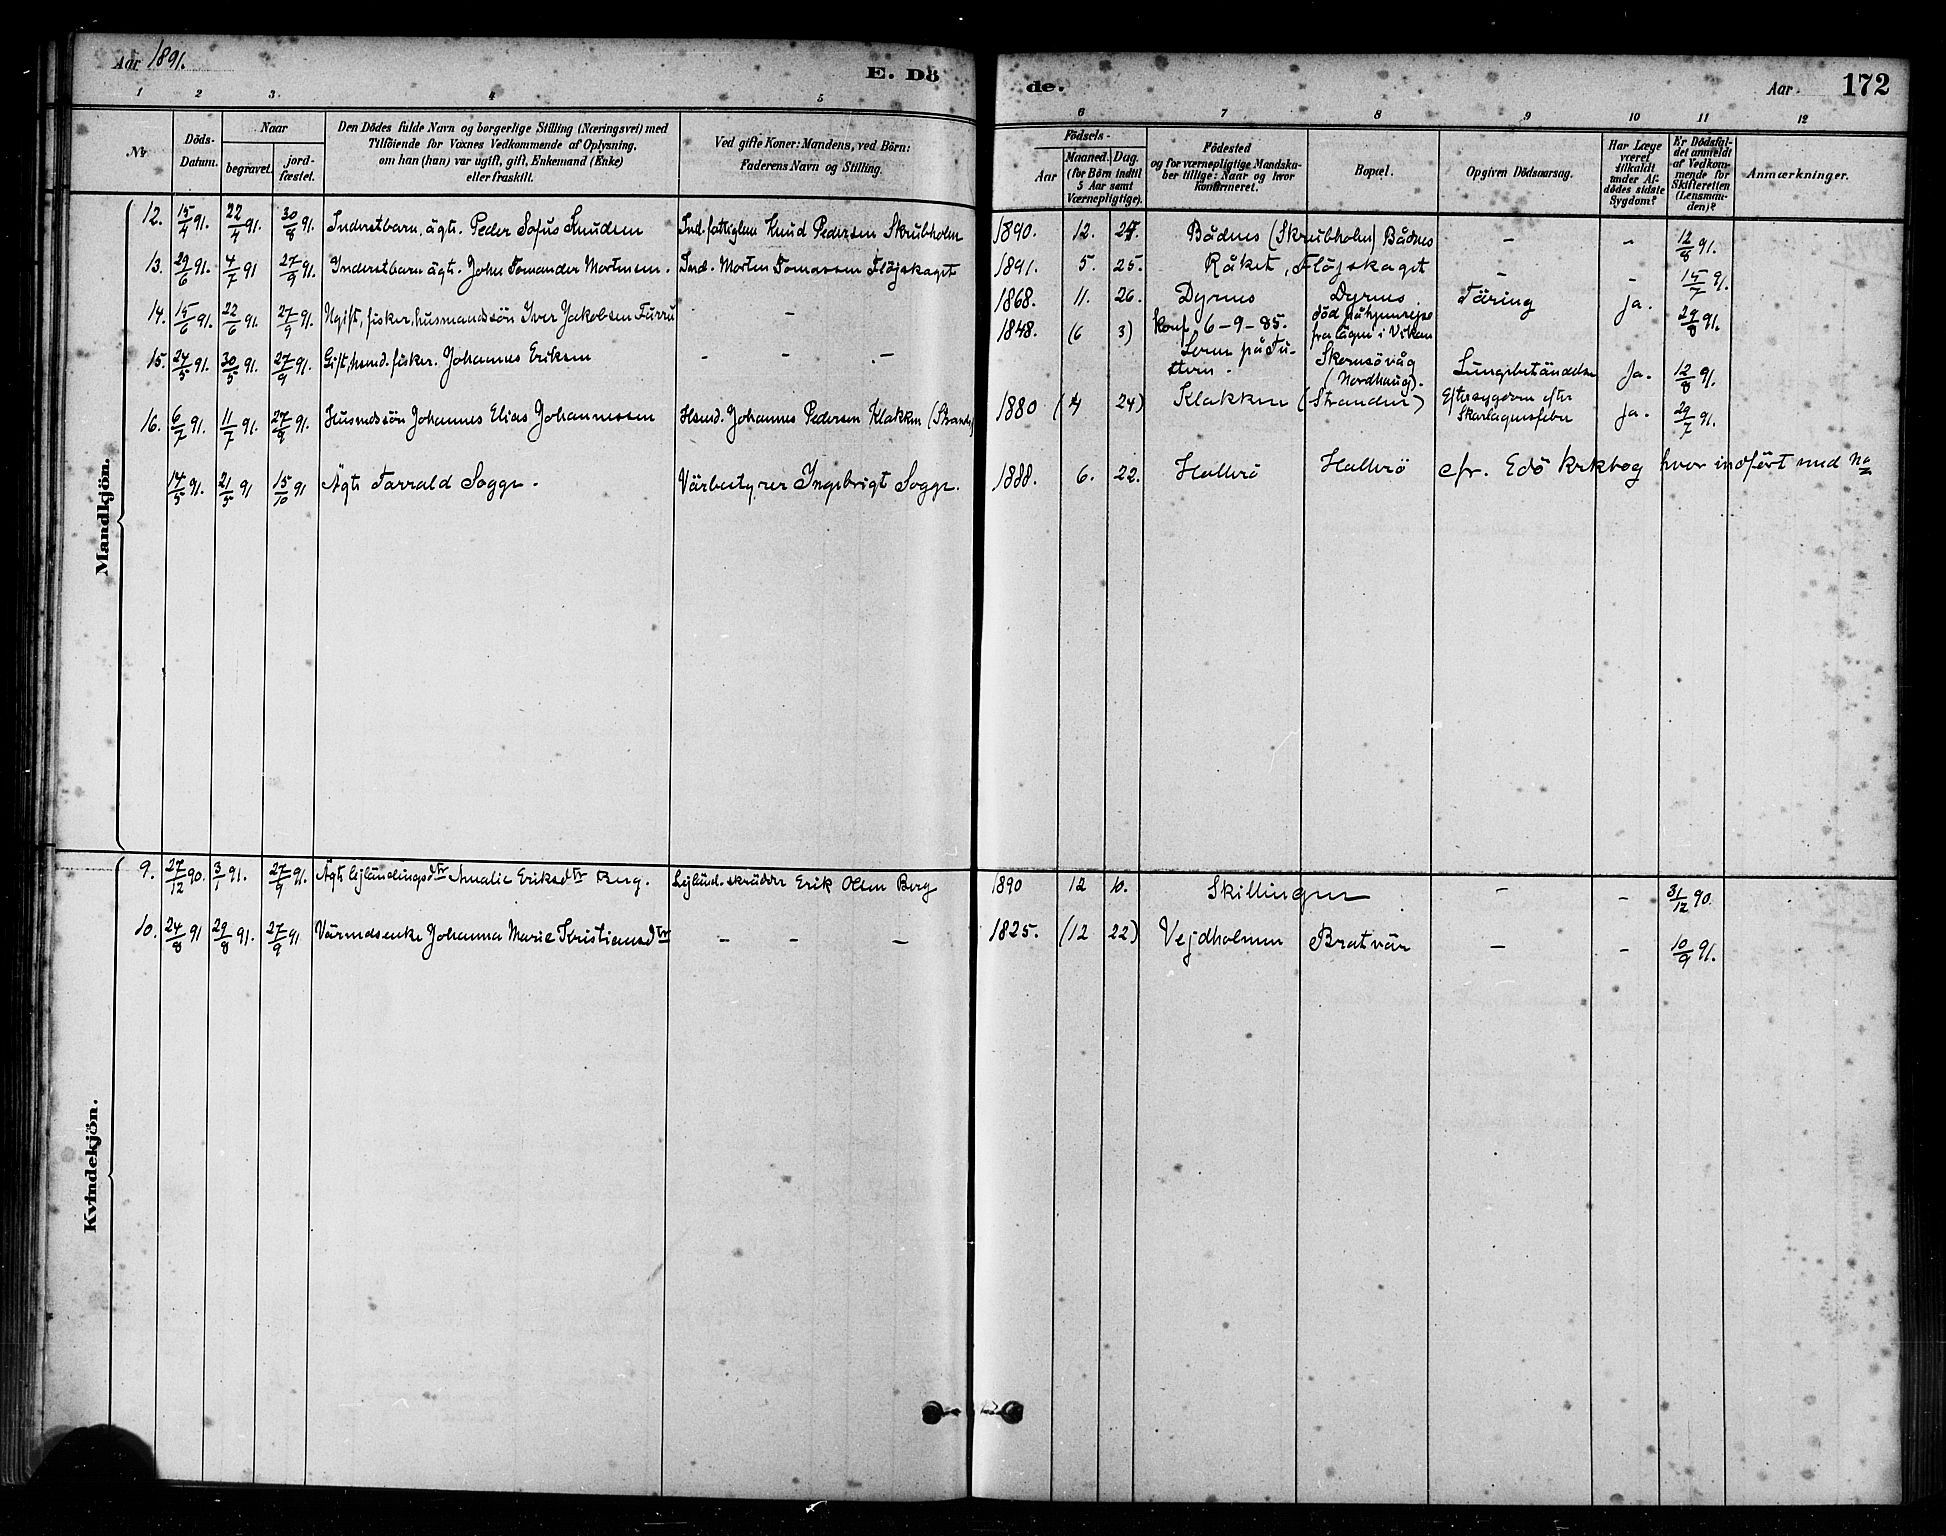 Aar 1891.
E. Dö
de.
Aar
172
1 2 3. 4 5 6 7 8 9 10 11 12
Nr
Döds-
Datum.
Naar
begravet.
jord-
fæstet.
Den Dödes fulde Navn og borgerlige Stilling (Næringsvei) med
Tilföiende for Voxnes Vedkommende af Oplysning,
om han (hun) var ugift, gift, Enkemand (Enke)
eller fraskilt.
Ved gifte Koner: Mandens, ved Börn:
Faderens Navn og Stilling.
Födsels-
Aar
Maaned. Dag.
(for Börn indtil
5 Aar samt
Værnepligtige).
Födested
og for værnepligtige Mandska-
ber tillige: Naar og hvor
konfirmeret.
Bopæl.
Opgiven Dödsaarsag.
Har Læge
været
tilkaldt
under Af-
dödes sidste
Sygdom?
Er Dödsfal-
det anmeldt
af Vedkom-
mende for
Skifteretten
(Lensman-
den)?
Anmærkninger.
Mandkjön.
12. 15/4 91. 22/4 91. 30/8 91. Inderstbarn, ägte. Peder Sofus Knudsen Ind. fattiglem Knud Pedersen Skrubholm 1890. 12. 24. Bådnes (Skrubholm) Bådnes - - 12/8 91.
13. 29/6 91. 4/7 91 27/9 91. Inderstbarn ägte. John Tomander Mortensen. Ind. Morten Tomassen Flöjskaget 1891. 5. 25. Råket, Flöjskaget - - 15/7 91.
14. 15/6 91. 22/6 91. 27/9 91. Ugift, fisker, husmandssön Iver Jakobsen Furru - 1868. 11. 26. Dyrnes Dyrnes. Täring ja. 29/8 91.
konf. 6-9-85. död på hjemrejse
fra lägen i Vikan
15. 24/5 91. 30/5 91. 27/9 91. Gift, husmd. fisker. Johannes Eriksen - - - 1848. (6 3) Leren på Tu-
stern. Skernsövåg
(Nordhaug). Lungebetändelse Ja. 12/8 91.
16. 6/7 91. 11/7 91. 27/9 91. Husmdssön Johannes Elias Johannessen Husmd. Johannes Pedersen Klakken (Stranden) 1880 (4 24) Klakken (Stranden) Eftersygdom efter
Skarlagensfeber ja. 29/7 91.
14/5 91. 21/5 91 15/10 91 Ägte Tarrald Sogge. Värbestyrer Ingebrigt Sogge. 1888. 6. 22. Hallerö Hallerö cfr. Edö krkbog hvor indfört med No
Kvindekjön.
9. 27/12 90. 3/1 91. 27/9 91. Ägte lejländingsdtr Amalie Eriksdtr Berg. Lejländ. skrädder Erik Olsen Berg 1890 12 10. Skillingen - - 31/12 90.
10. 24/8 91 29/8 91. 27/9 91 Värmdsenke Johanna Marie Kristiansdtr - - - 1825. (12 22) Vejdholmen Bratvär - - 10/9 91.